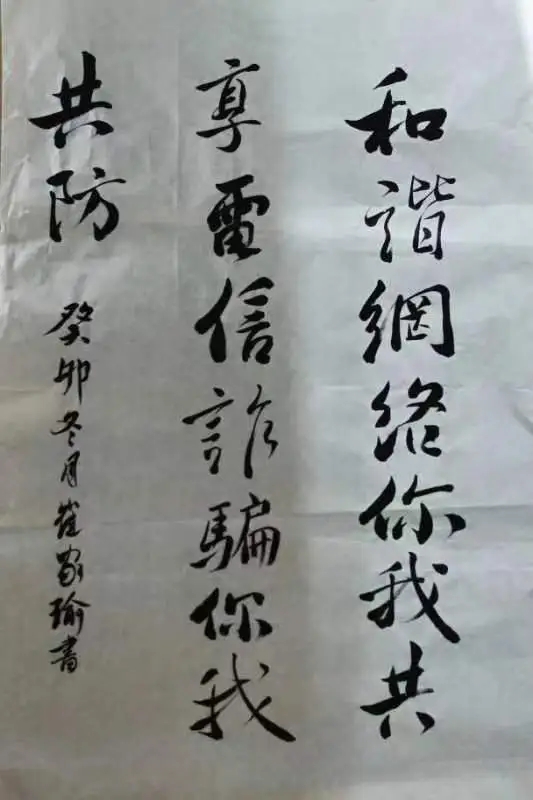 和諧網絡你我共
享雷信詐騙你我
共防
癸卯冬月崔家瑜書